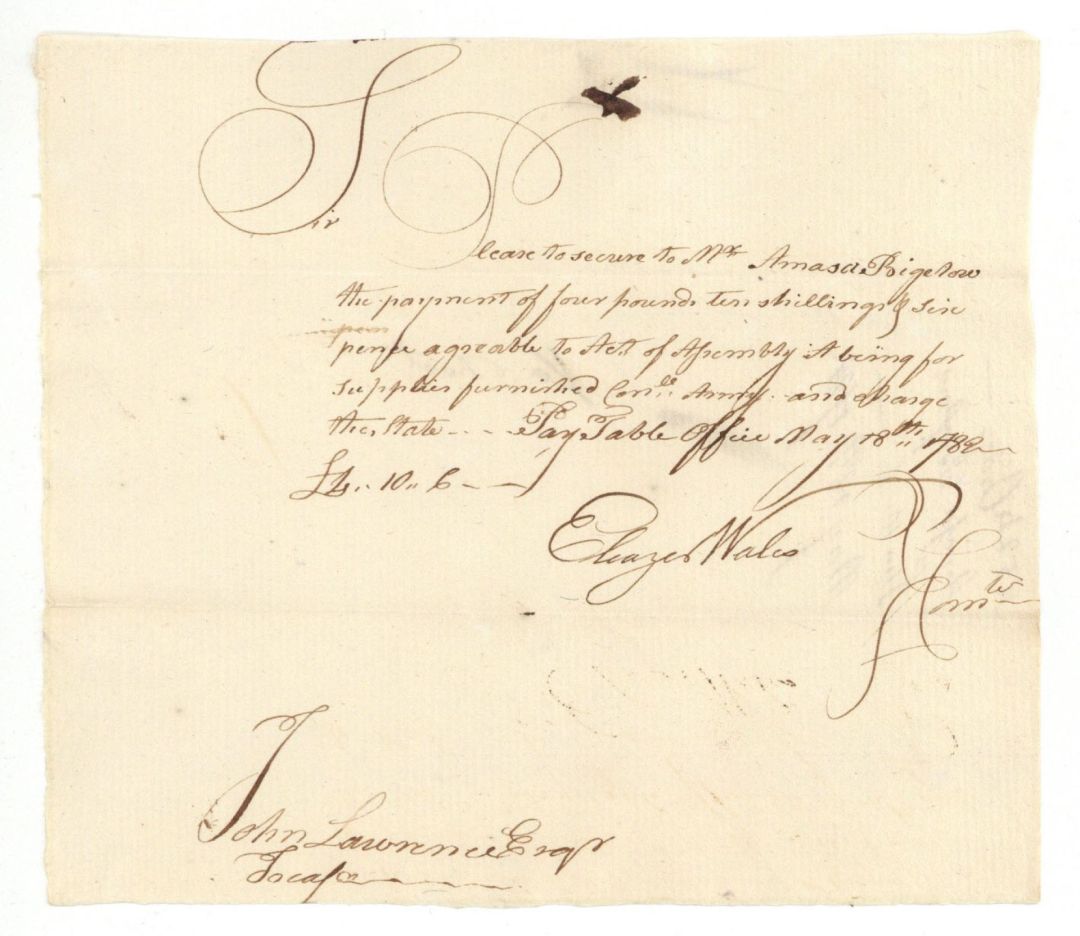 Sir
Please to secure to Mr. Amasa Bigelow
the payment of four pounds ten shillings & six
pence agreable to Act of Assembly it being for
supplies furnished Conll. Army. and charge
the State --- Pay Table Office May 18th,, 1782
£4,, 10,, 6 ——
Eleazer Wales
Comtee
To
John Lawrence Esqr
Treasr